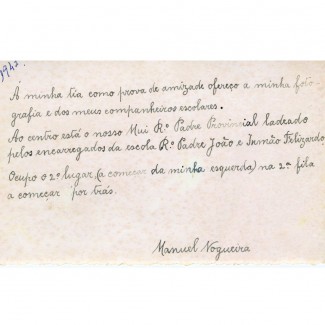 1947.
A minha tia como prova de amizade ofereço a minha foto-
grafia e dos meus companheiros escolares.
Ao centro está o nosso Mui R.º Padre Provincial ladeado
pelos encarregados da escola R.º Padre João e Irmão Felizardo,
Ocupo o 2º lugar, (a começar da minha esquerda) na 2ª fila
a começar por trás.
Manuel Nogueira